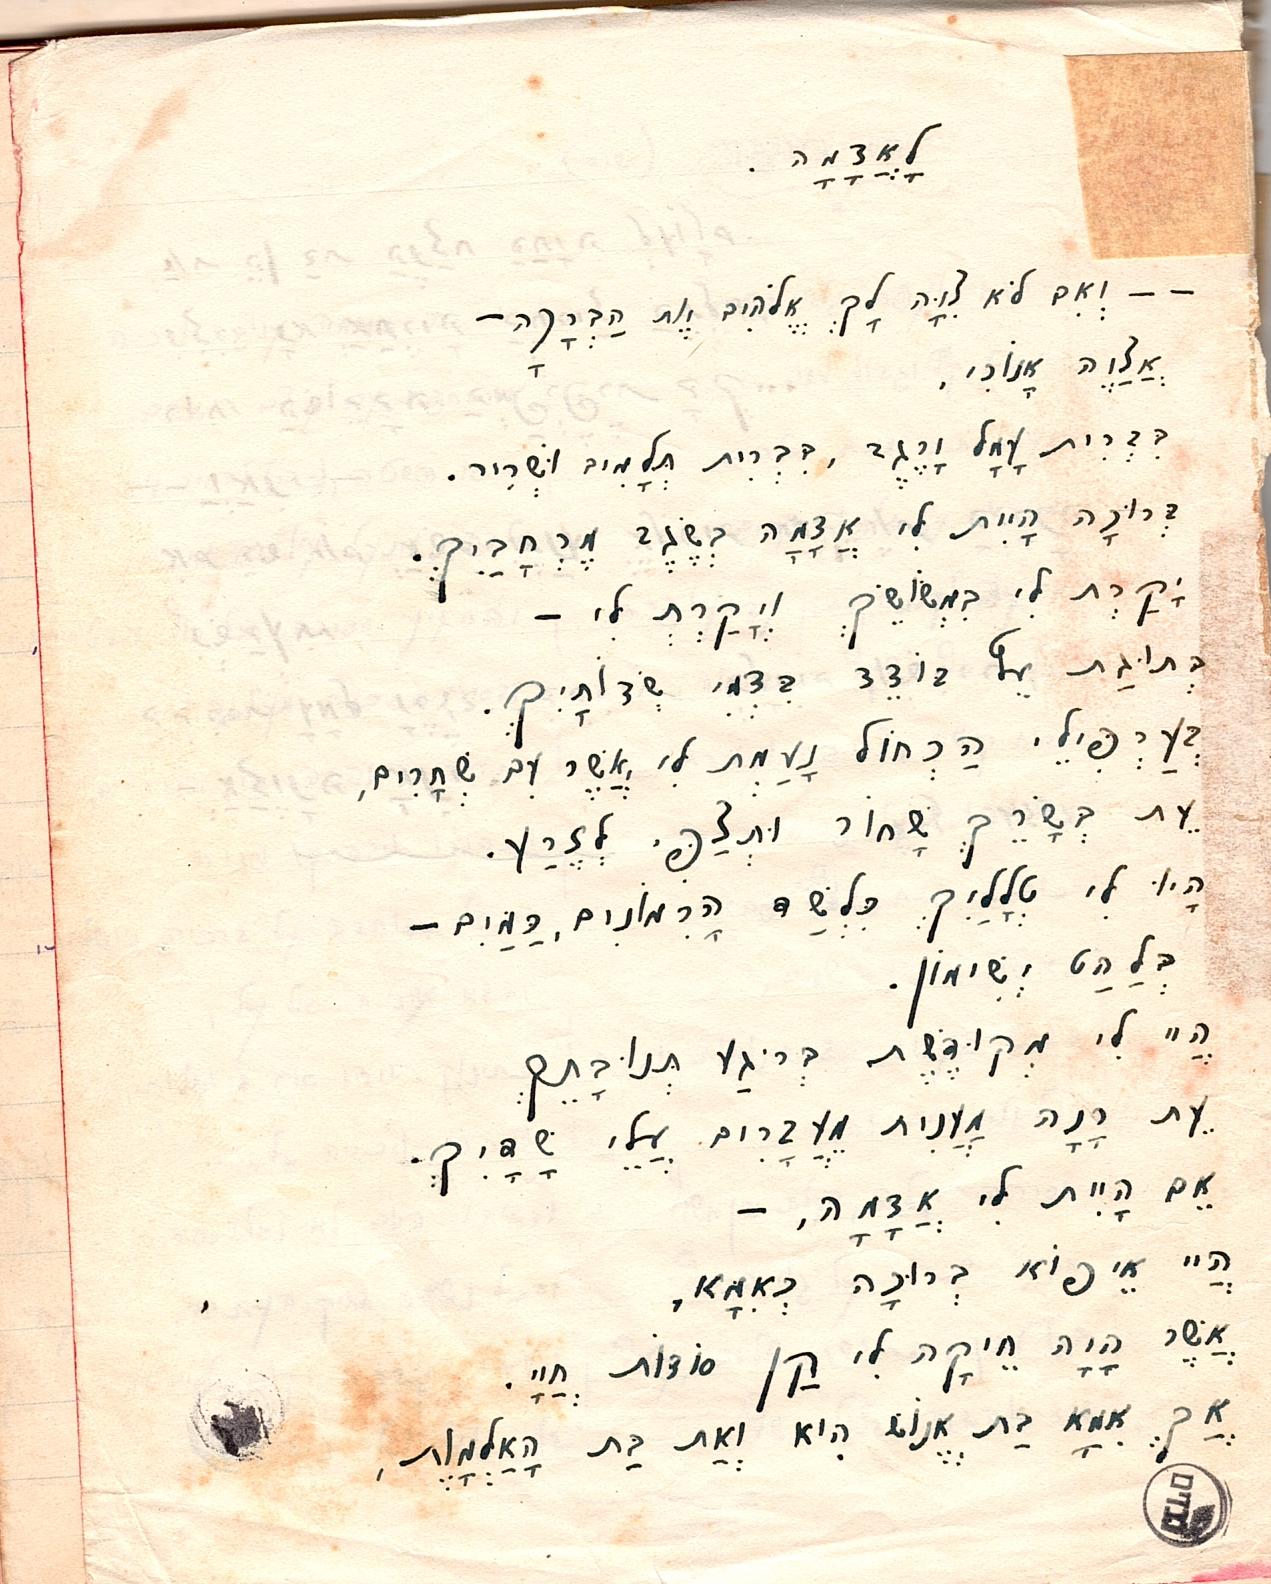 לָאֲדָמָה .
– – וְאִם לֹא צִוָּה לָךְ אֱלֹהִים אֶת הַבְּרָכָה –
אֲצַוֶּה אָנוֹכִי,
בִּבְרִית עָמָל וָרֶגֶב, בִּבְרִית תְּלָמִים וּשְׁרִיר.
בְּרוּכָה הָיִית לִי אֲדָמָה בְּשֶׂגֶב מֶרְחָבַיִךְ.
יָקַרְתְּ לִי בִּמְשׂוֹשֵׂךְ וְיָקַרְתְּ לִי –
בְּתוּגַת עֵץ בּוֹדֵד בִּדְמִי שְׂדוֹתָיִךְ.
בְּעַרְפִילֵי הַכְּחוֹל נָעַמְתְּ לִי אֲשֶׁר עִם שְׁחָרִים,
עֵת בְּשָׂרֵךְ שָׁחוֹר וּתְצַפִּי לְזֶרַע.
הָיוּ לִי טְלָלַיִךְ כִּלְשַׁד הָרִמּוֹנִים, כַּמַּיִם –
בְּלַהַט יְשִׁימוֹן.
הֲיי לִי מְקוּדֶּשֶׁת בְּרִיגַע תְּנוּבָתֵךְ
עֵת רָנָה מַעֲנִית מֵעֲבָרִים עֲלֵי שָׁדָיִךְ.
אִם הָיִית לִי אֲדָמָה, –
הֲיי אֵיפוֹא בְּרוּכָה כְּאִמָּא,
אֲשֶׁר הָיָה חֵיקָהּ לִי קַן סוֹדוֹת חַיַּי.
אַךְ אִמָּא בַּת אֱנוֹשׁ הִיא וְאַתְּ בַּת הָאַלְמָוֶת,